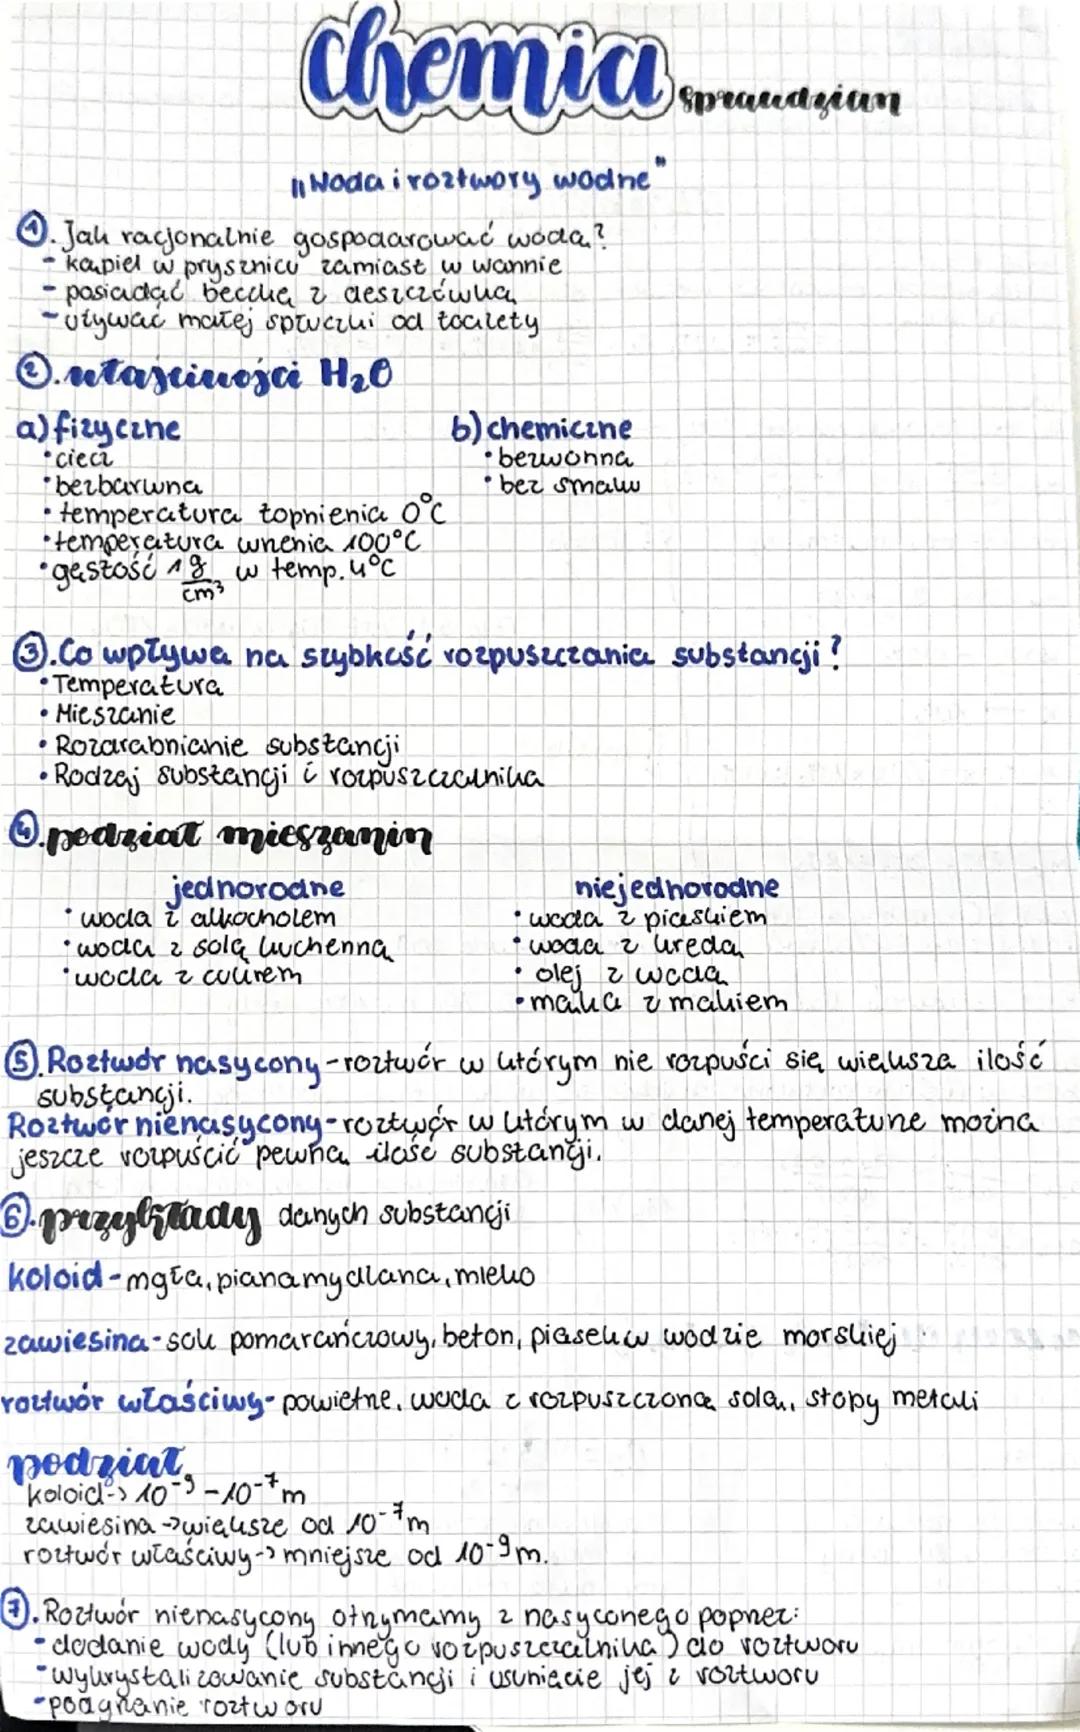 chemia sprawdzian
"Woda i roztwory wodne"
1. Jak racjonalnie gospodarować wodą?
- kąpiel w prysznicu zamiast w wannie
- posiadać beczkę z deszczówką
- używać małej spłuczki od toalety
2. właściwości H₂O
a) fizyczne b) chemiczne
• ciecz • bezwonna
• bezbarwna • bez smaku
• temperatura topnienia 0°C
• temperatura wrzenia 100°C
• gęstość 1 g/cm³ w temp. 4°C
3. Co wpływa na szybkość rozpuszczania substancji?
• Temperatura
• Mieszanie
• Rozdrabnianie substancji
• Rodzaj substancji i rozpuszczalnika
4. podział mieszanin
jednorodne niejednorodne
• woda z alkocholem • woda z piaskiem
• woda z solą kuchenną • woda z kredą
• woda z cukrem • olej z wodą
• mąka z makiem
5. Roztwór nasycony - roztwór w którym nie rozpuści się większa ilość
substancji.
Roztwór nienasycony - roztwór w którym w danej temperaturze można
jeszcze rozpuścić pewną ilość substancji.
6. przykłady danych substancji
koloid - mgła, piana mydlana, mleko
zawiesina - sok pomarańczowy, beton, piasek w wodzie morskiej
roztwór właściwy - powietrze, woda z rozpuszczoną solą, stopy metali
podział
koloid -> 10⁻⁹ - 10⁻⁷ m
zawiesina -> większe od 10⁻⁷ m
roztwór właściwy -> mniejsze od 10⁻⁹ m.
7. Roztwór nienasycony otrzymamy z nasyconego poprzez:
- dodanie wody (lub innego rozpuszczalnika) do roztworu
- wykrystalizowanie substancji i usunięcie jej z roztworu
- podgrzanie roztworu